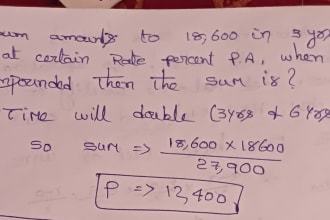 amounts to 18,600 in 3
at certain Rate percent P.A, when
Then the sum is?
Time will double (3yrs & 6 yrs
so sum => 18,600 x 18600
27,900
P => 12,400